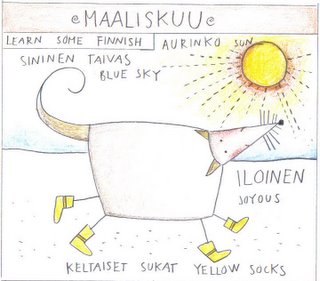 MAALISKUU
LEARN SOME FINNISH
AURINKO SUN
SININEN TAIVAS
BLUE SKY
ILOINEN
JOYOUS
KELTAISET SUKAT YELLOW SOCKS